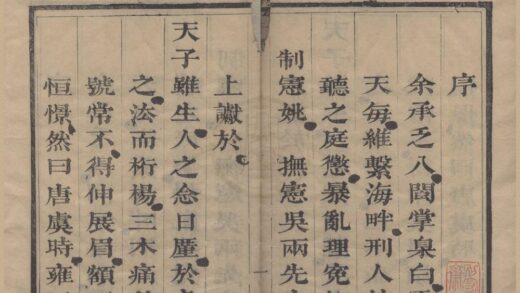 序
余承乏八閩掌臬白
天每維繫海畔刑人
聽之庭懲暴亂理冤
制憲姚　撫憲吳兩先
上讞於
一
天子雖生人之念日厪於
之法而桁楊三木痛
號常不得伸展眉額
恒憬然曰唐虞時雍